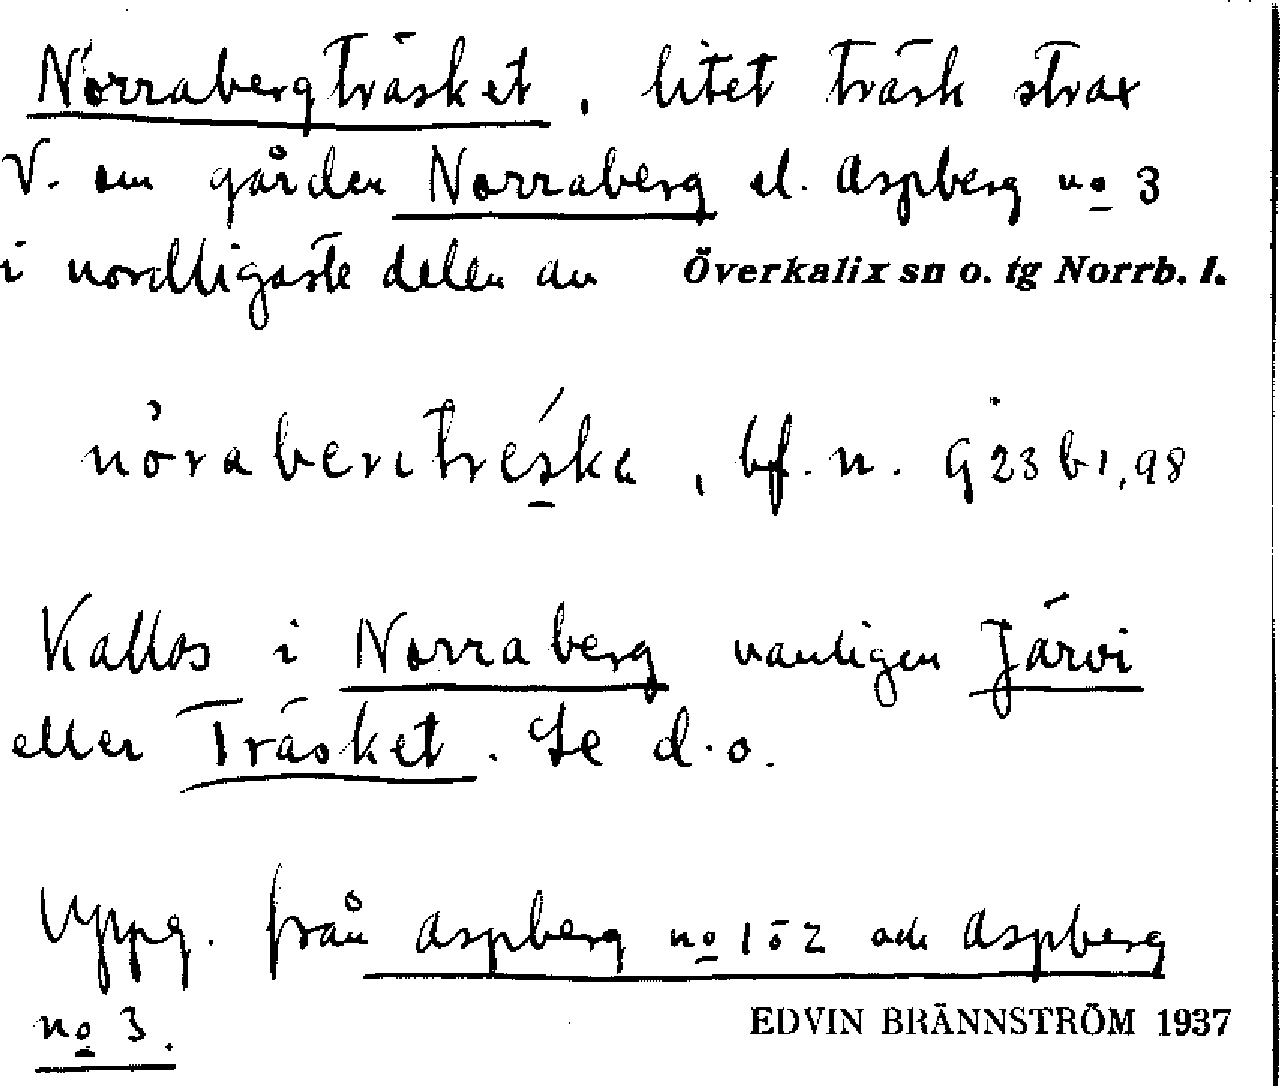 Norrabergträsket, litet träsk strax
V. om gården Norraberg el. Aspberg no 3
i nordligaste delen av Överkalix sn o. tg Norrb. l.
bf. n. G 23 b 1, 98
Kallas i Norraberg vanligen Järvi
eller Träsket. Se d.o.
Uppg. från Aspberg no 1 o 2 och Aspberg
no 3.
EDVIN BRÄNNSTRÖM 1937